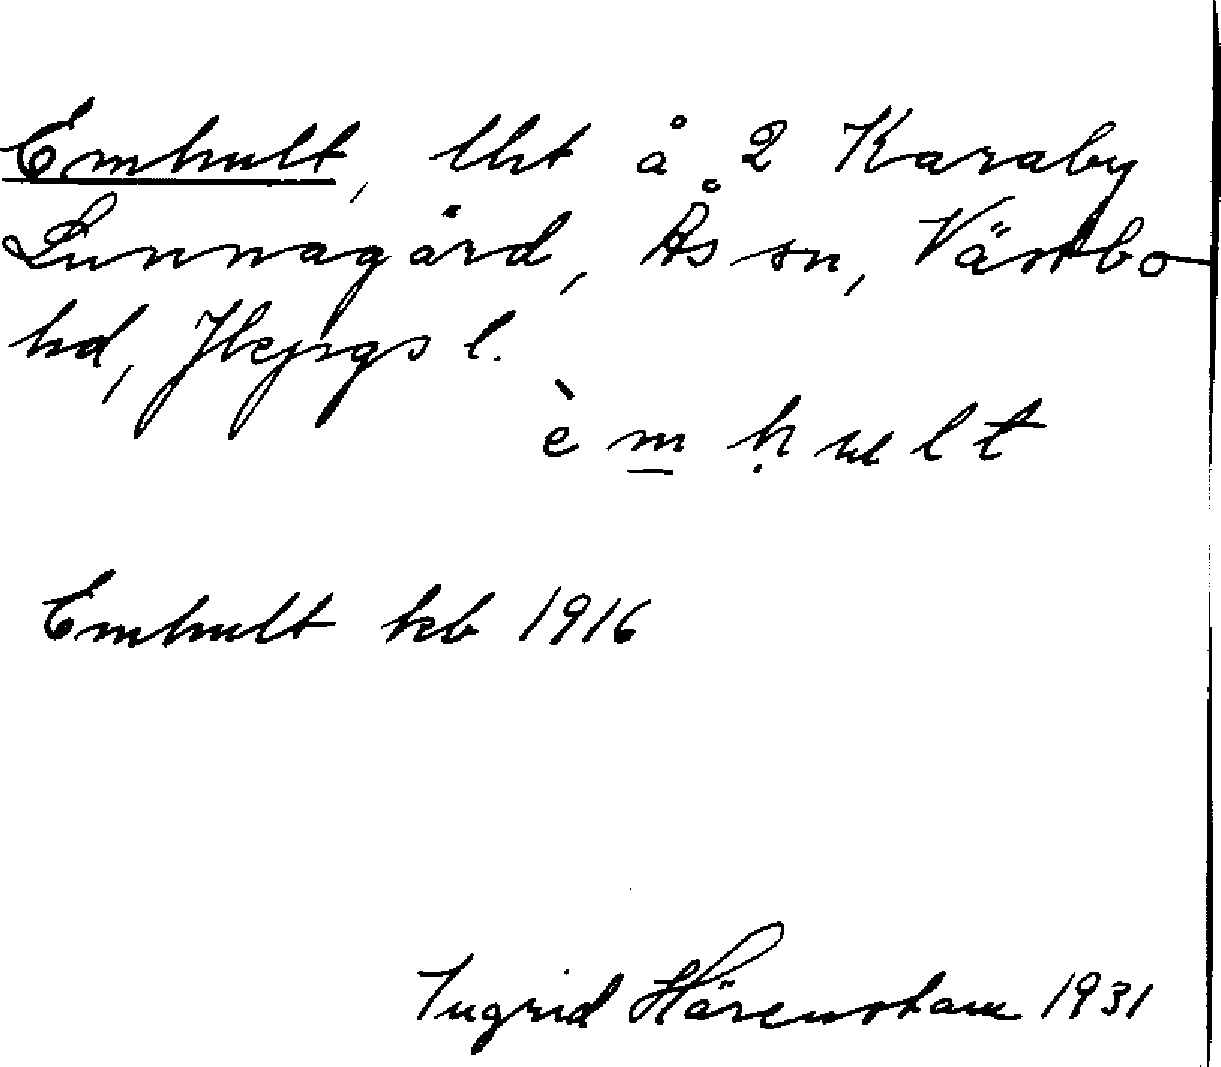 Emhult, lht å 2 Karaby
Lunnagård, Ås sn, Västbo
hd, Jkpgs l.
è m ḥ u l t
Emhult kb 1916
Ingrid Härenstam 1931